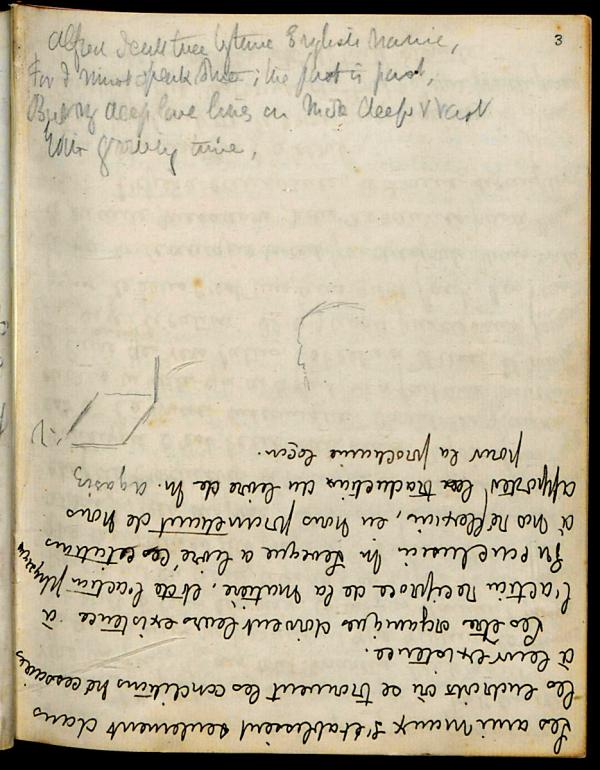 3
Alfred I call thee by thine English name,
For I must speak thus; the past is past,
But my deep love lives on more deep & vast
With growing time,
Les animaux s'établisent seulement dans
les endroits où se trouvent les conditions nécessaires
à leur existence.
Les être organiques doivent leurs existence à
l'action réciproque de la matière, et de l'action
En conclusion M Leveque a livré ces citations
à nos réflexions, en nous promettant de nous
apporter les traductions du livre de M. Agasiz
pour la prochaine leçon.